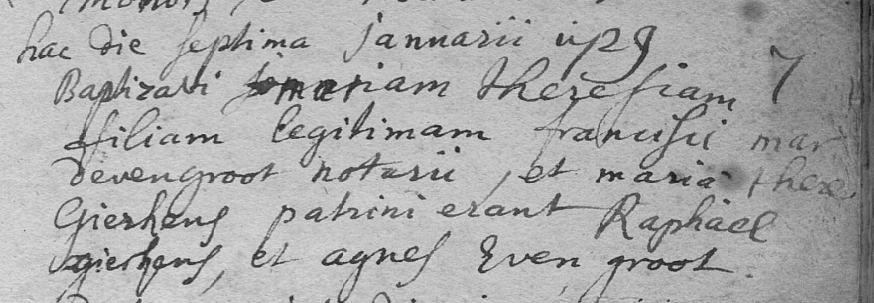 hac die septima Januarii
Baptizavi mariam theresiam 7
filiam legitimam francisci mar
devengroot notarii, et maria there
Gierkens patrini erant Raphael
gierkens, et agnes Even groot